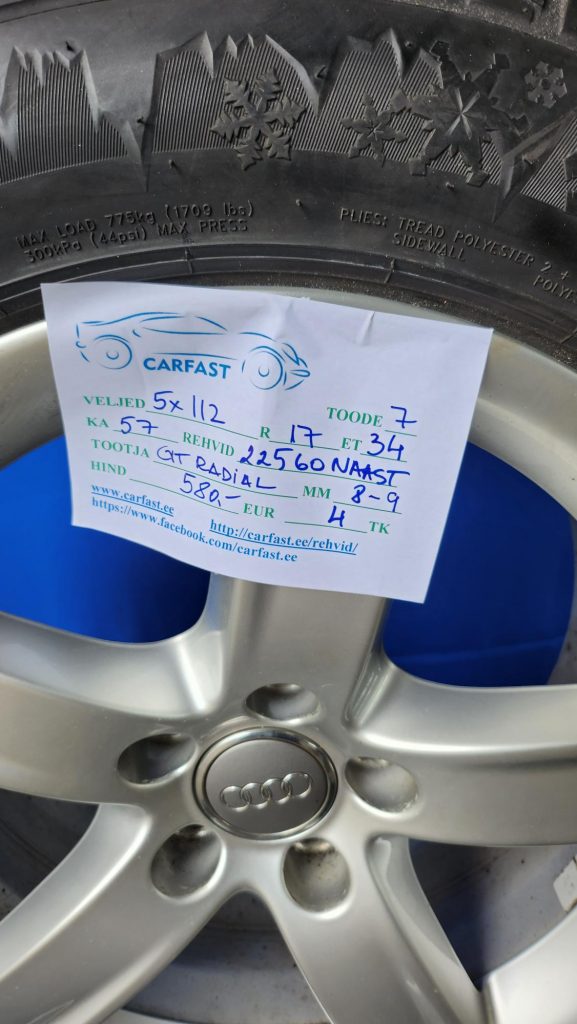 MAX LOAD 775kg (1709 lbs)
300kPa (44psi) MAX PRESS
PLIES: TREAD POLYESTER 2 +
SIDEWALL POLYE
CARFAST
VELJED 5x112 R 17 TOODE 7
KA 57 REHVID 22560 NAAST ET 34
TOOTJA GT RADIAL MM 8-9
HIND 580,- EUR 4 TK
www.carfast.ee http://carfast.ee/rehvid/
https://www.facebook.com/carfast.ee